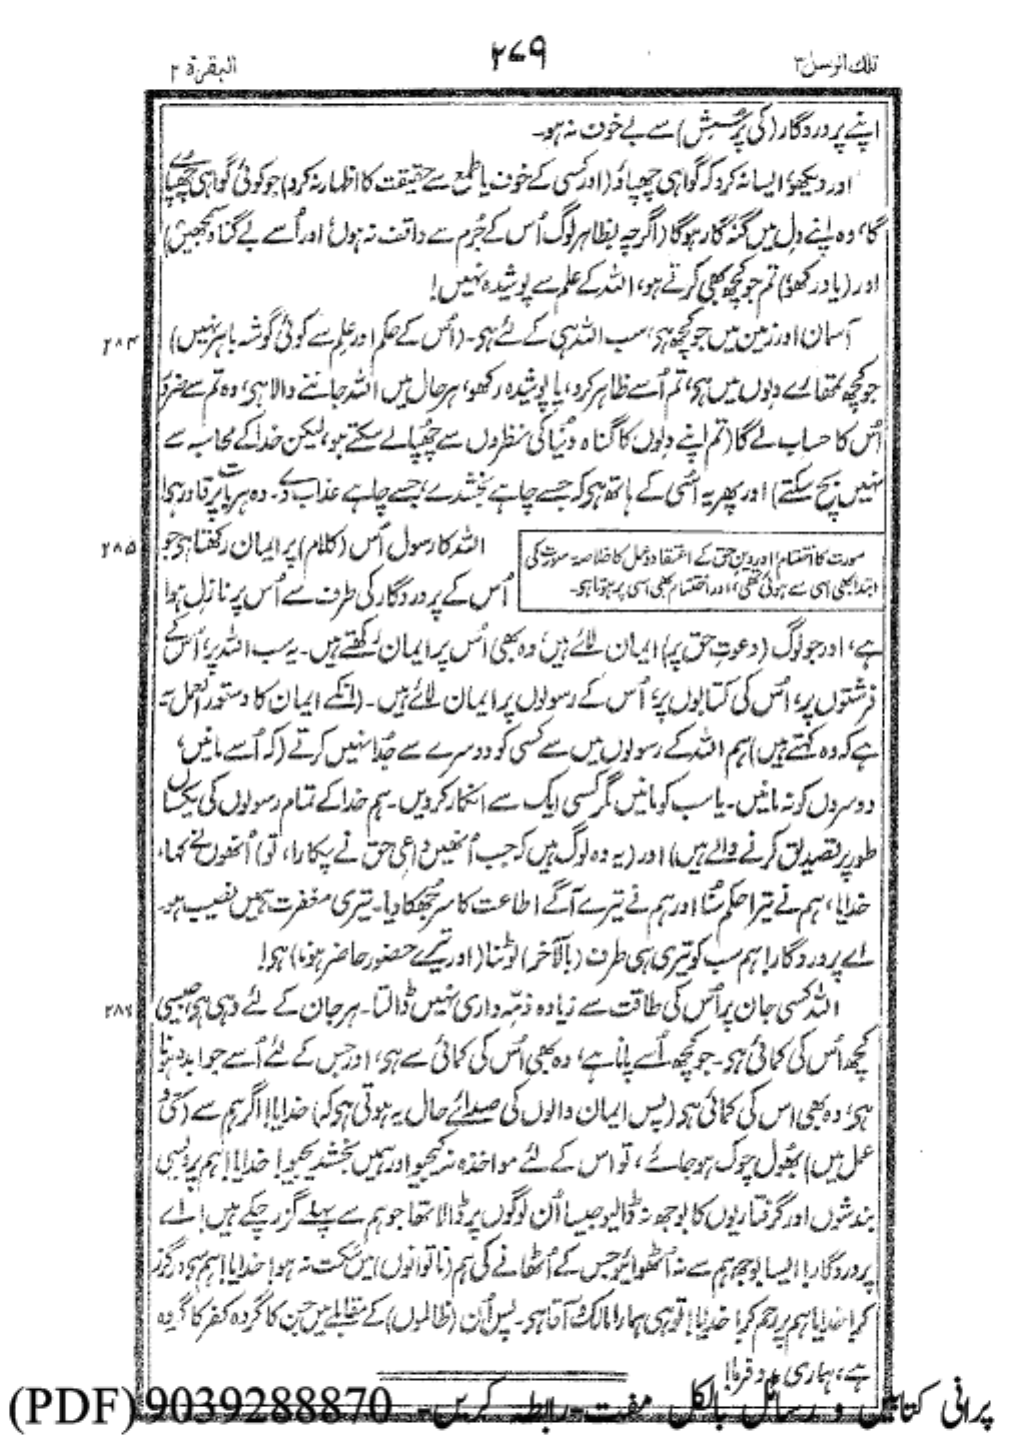 تلك الرسل ٣
۲۷۹
البقرة ۲
اپنے پروردگار (کی پرسش) سے بے خوف نہ ہو۔
اور دیکھو، ایسا نہ کرو کہ گواہی چھپاؤ (اور کسی کے خوف یا طمع سے حقیقت کا اظہار نہ کرو) جو کوئی گواہی چھپائے
گا، وہ اپنے دل میں گنہگار ہوگا (اگرچہ بظاہر لوگ اُس کے جُرم سے واقف نہ ہوں، اور اُسے بے گناہ سمجھیں)
اور (یاد رکھو) تم جو کچھ بھی کرتے ہو، اللہ کے علم سے پوشیدہ نہیں!
۲۸۴
آسمان اور زمین میں جو کچھ ہی، سب اللہ ہی کے لئے ہی۔ (اُس کے حکم اور علم سے کوئی گوشہ باہر نہیں)
جو کچھ تمھارے دلوں میں ہی، تم اُسے ظاہر کرو، یا پوشیدہ رکھو، ہر حال میں اللہ جاننے والا ہی، وہ تم سے ضرور
اُس کا حساب لے گا (تم اپنے دلوں کا گناہ دنیا کی نظروں سے چھپا لے سکتے ہو، لیکن خدا کے محاسبہ سے
نہیں بچ سکتے) اور پھر یہ اُسی کے ہاتھ ہی کہ جسے چاہے بخشدے، جسے چاہے عذاب دے۔ وہ ہر بات پر قادر ہی!
سورت کا اختتام اور دینِ حق کے اعتقاد و عمل کا خلاصہ سورت کی
ابتدا بھی اسی سے ہوئی تھی، اور اختتام بھی اسی پر ہوتا ہو۔
۲۸۵
اللہ کا رسول اُس (کلام) پر ایمان رکھتا ہی جو
اُس کے پروردگار کی طرف سے اُس پر نازل ہوا
ہے، اور جو لوگ (دعوتِ حق پر) ایمان لائے ہیں، وہ بھی اُس پر ایمان رکھتے ہیں۔ یہ سب اللہ پر، اُس کے
فرشتوں پر، اُس کی کتابوں پر، اُس کے رسولوں پر ایمان لائے ہیں۔ (انکے ایمان کا دستور العمل یہ
ہے کہ وہ کہتے ہیں) ہم اللہ کے رسولوں میں سے کسی کو دوسرے سے جُدا نہیں کرتے (کہ اُسے مانیں،
دوسروں کو نہ مانیں۔ یا سب کو مانیں مگر کسی ایک سے انکار کر دیں۔ ہم خدا کے تمام رسولوں کی یکساں
طور پر تصدیق کرنے والے ہیں) اور (یہ وہ لوگ ہیں کہ جب اُنھیں داعی حق نے پکارا، تو) اُنھوں نے کہا،
خدایا، ہم نے تیرا حکم سُنا اور ہم نے تیرے آگے اطاعت کا سر جھکا دیا۔ تیری مغفرت ہمیں نصیب ہو۔
اے پروردگار! ہم سب کو تیری ہی طرف (بالآخر) لوٹنا (اور تیرے حضور حاضر ہونا) ہی!
۲۸۶
اللہ کسی جان پر اُس کی طاقت سے زیادہ ذمّہ داری نہیں ڈالتا۔ ہر جان کے لئے وہی ہی، جیسی
کچھ اُس کی کمائی ہی۔ جو کچھ اُسے پانا ہے، وہ بھی اُس کی کمائی سے ہی، اور جس کے لئے اُسے جوابدہ ہونا
ہی، وہ بھی اس کی کمائی ہی (پس ایمان والوں کی صدائے حال یہ ہوتی ہی کہ) خدایا! اگر ہم سے (سعی و
عمل میں) بھول چوک ہو جائے، تو اس کے لئے مواخذہ نہ کیجیو اور ہمیں بخشدیجیو! خدایا! ہم پر ویسی
بندشوں اور گرفتاریوں کا بوجھ نہ ڈالیو جیسا اُن لوگوں پر ڈالا تھا جو ہم سے پہلے گزر چکے ہیں! اے
پروردگار! ایسا بوجھ ہم سے نہ اُٹھوائیو جس کے اُٹھانے کی ہم (ناتوانوں) میں سکت نہ ہو! خدایا! ہم سے درگزر
کر! خدایا ہم پر رحم کر! خدایا! تو ہی ہمارا مالک و آقا ہی۔ پس اُن (ظالموں) کے مقابلے میں جن کا گروہ کفر کا گروہ
ہے، ہماری مدد فرما!
پرانی کتابیں و رسائل بالکل مفت۔ رابطہ کریں۔ 9039288870 (PDF)